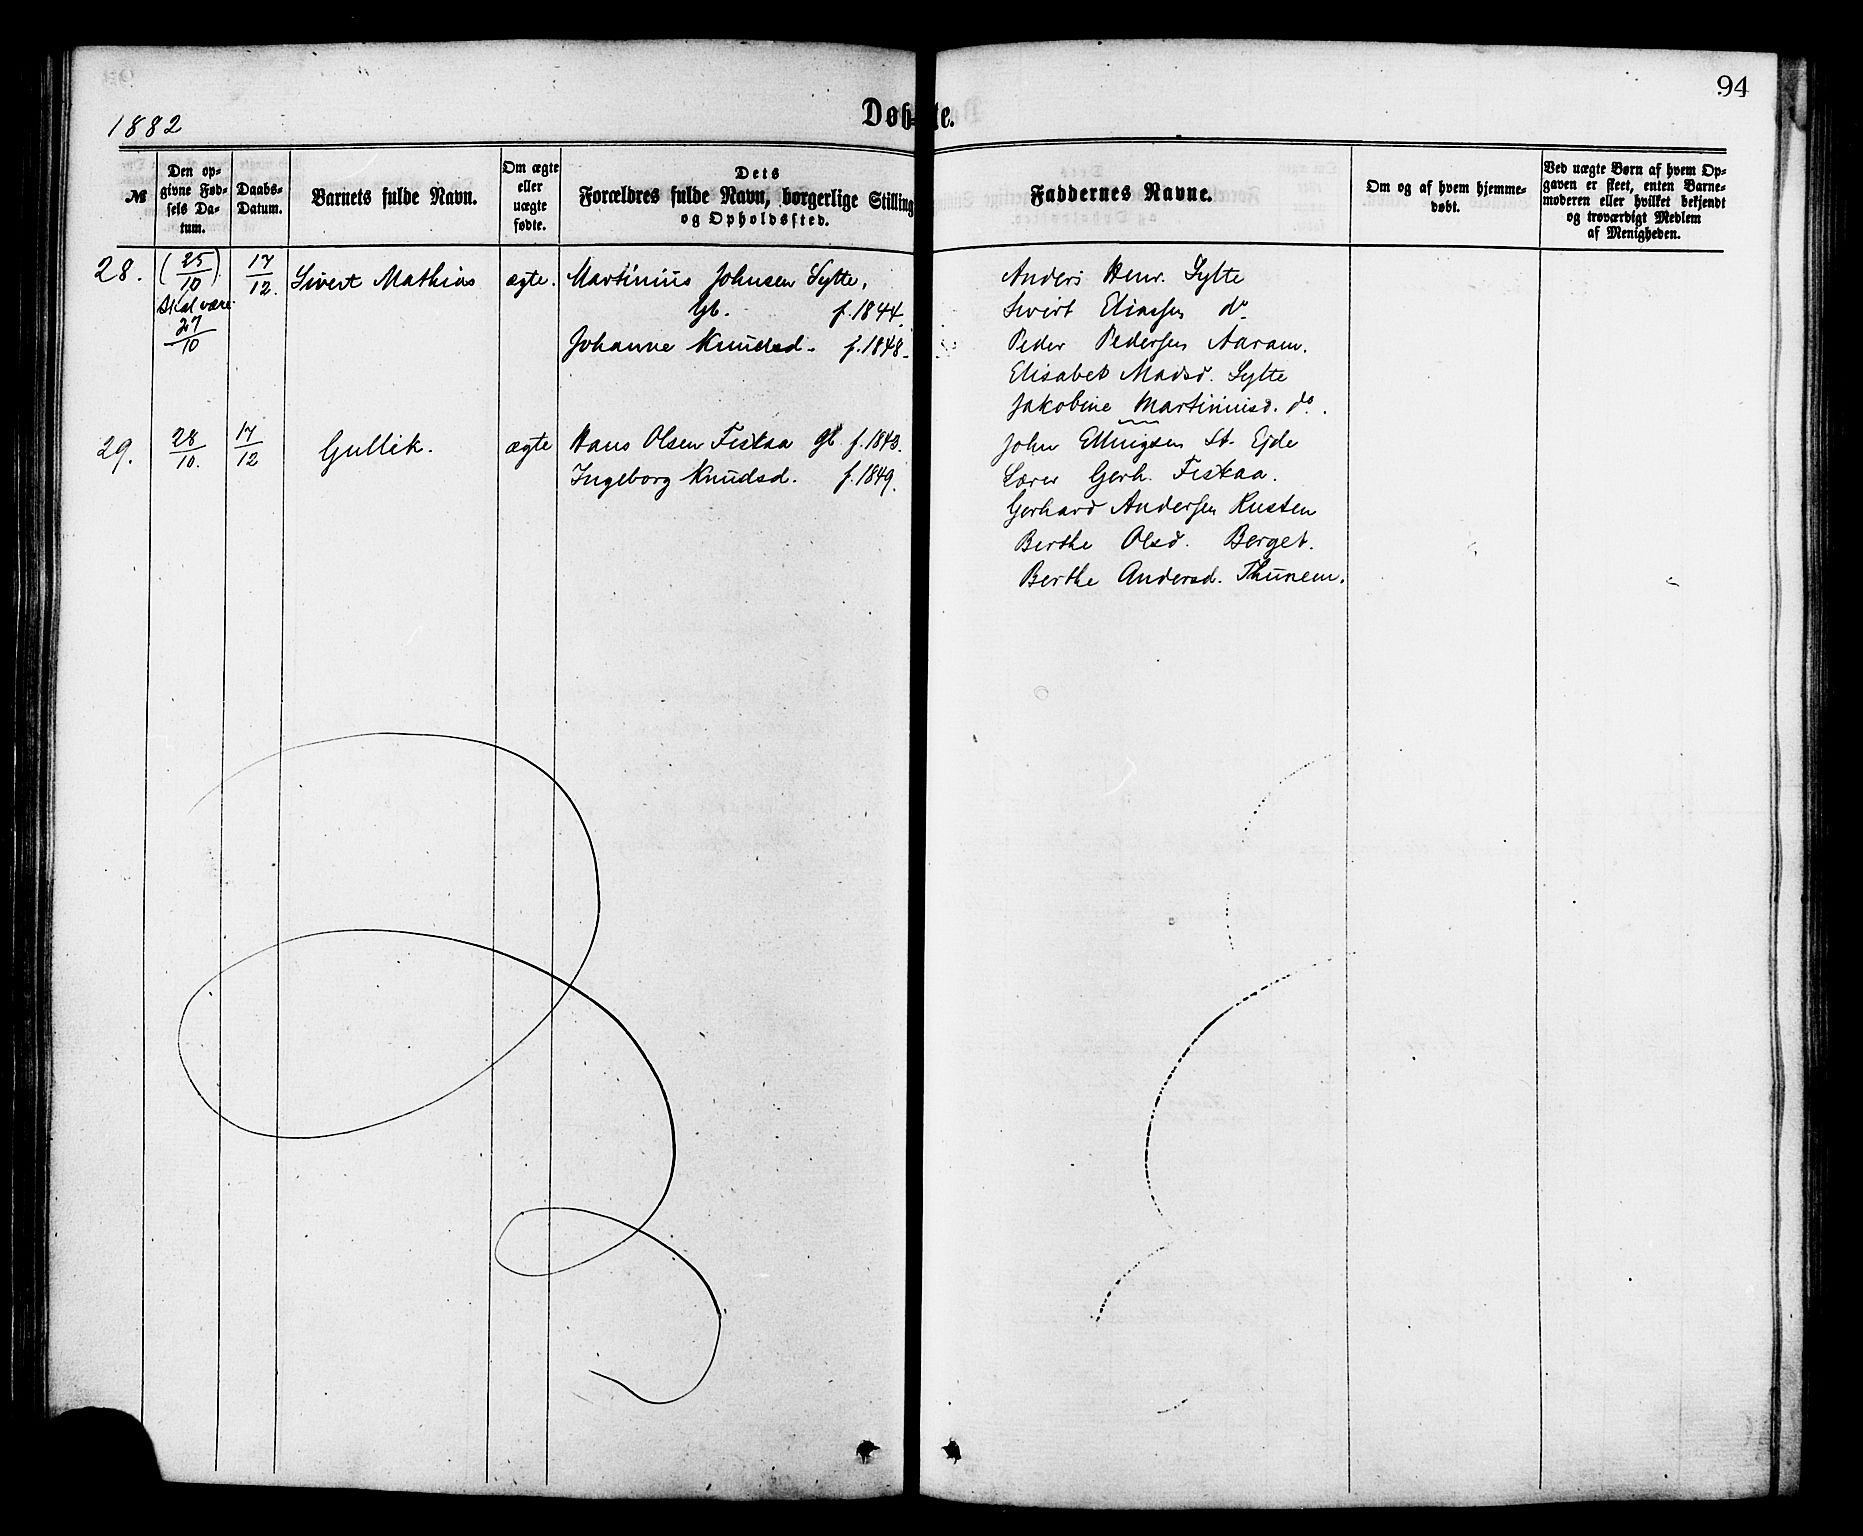 94
1882
Døb-te.
№
Den op-
givne Fød-
sels Da-
tum.
Daabs-
Datum.
Barnets fulde Navn.
Om ægte
eller
uægte
fødte.
Dets
Forældres fulde Navn, borgerlige Stilling
og Opholdssted.
Faddernes Navne.
Om og af hvem hjemme-
døbt.
Ved uægte Børn af hvem Op-
gaven er skeet, enten Barne-
moderen eller hvilket bekjendt
og troværdigt Medlem
af Menigheden.
28.
(25/10)
Skal være
27/10
17/12.
Sivert Mathias
ægte.
Martinius Johnsen Sylte,
Gb. f. 1844.
Johanne Knudsd. f. 1848.
Anders Henr. Sylte
Sivert Eliassen do
Peder Pedersen Aaram.
Elisabet Madsd. Sylte
Jakobine Martiniusd. do.
29.
28/10.
17/12
Gullik.
ægte
Hans Olsen Fiskaa gb. f. 1843.
Ingeborg Knudsd. f. 1849.
John Ellingsen St. Ejde
Lærer Gerh. Fiskaa.
Gerhard Andersen Rusten
Berthe Olsd. Berget.
Berthe Andersd. Thunem.